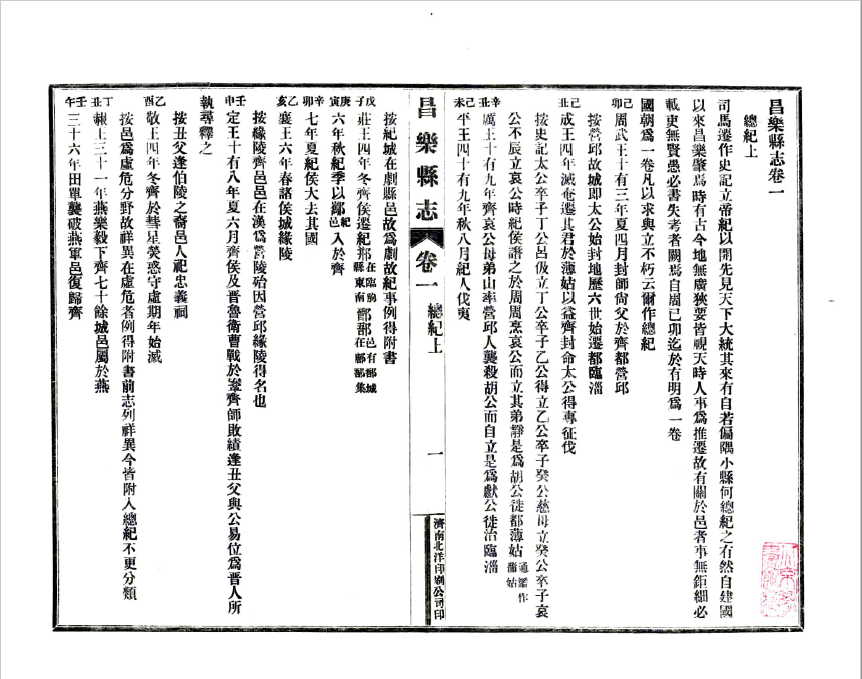 昌樂縣志卷一
總紀上
司馬遷作史記立帝紀以開先見天下大統其來有自若偏隅小縣何總紀之有然自建國
以來昌樂肇焉時有古今地無廣狹要皆視天時人事為推遷故有關於邑者事無鉅細必
載更無賢愚必書失考者闕焉自周己卯迄於有明為一卷
國朝為一卷凡以求與立不朽云爾作總紀
己卯 周武王十有三年夏四月封師尚父於齊都營邱
按營邱故城即太公始封地歷六世始遷都臨淄
己丑 成王四年滅奄遷其君於薄姑以益齊封命太公得專征伐
按史記太公卒子丁公呂伋立丁公卒子乙公得立乙公卒子癸公慈母立癸公卒子哀
公不辰立哀公時紀侯譖之於周周烹哀公而立其弟靜是為胡公徙都薄姑 通鑑作蒲姑
辛丑 厲王十有九年齊哀公母弟山率營邱人襲殺胡公而自立是為獻公徙治臨淄
己未 平王四十有九年秋八月紀人伐夷
昌樂縣志
卷一
總紀上
一
濟南北洋印刷公司印
按紀城在劇縣邑故為劇故紀事例得附書
戊子 莊王四年冬齊侯遷紀郱 在臨朐縣東南 鄑郚 邑有鄑城在鄌郚集
庚寅 六年秋紀季以酅 紀邑 入於齊
辛卯 七年夏紀侯大去其國
乙亥 襄王六年春諸侯城緣陵
按緣陵齊邑邑在漢為營陵殆因營邱緣陵得名也
壬申 定王十有八年夏六月齊侯及晉魯衛曹戰於鞌齊師敗績逢丑父與公易位為晉人所
執尋釋之
按丑父逢伯陵之裔邑人祀忠義祠
乙酉 敬王四年冬齊於彗星熒惑守虛期年始滅
按邑為虛危分野故祥異在虛危者例得附書前志列祥異今皆附入總紀不更分類
丁丑 赧王三十一年燕樂毅下齊七十餘城邑屬於燕
壬午 三十六年田單襲破燕軍邑復歸齊